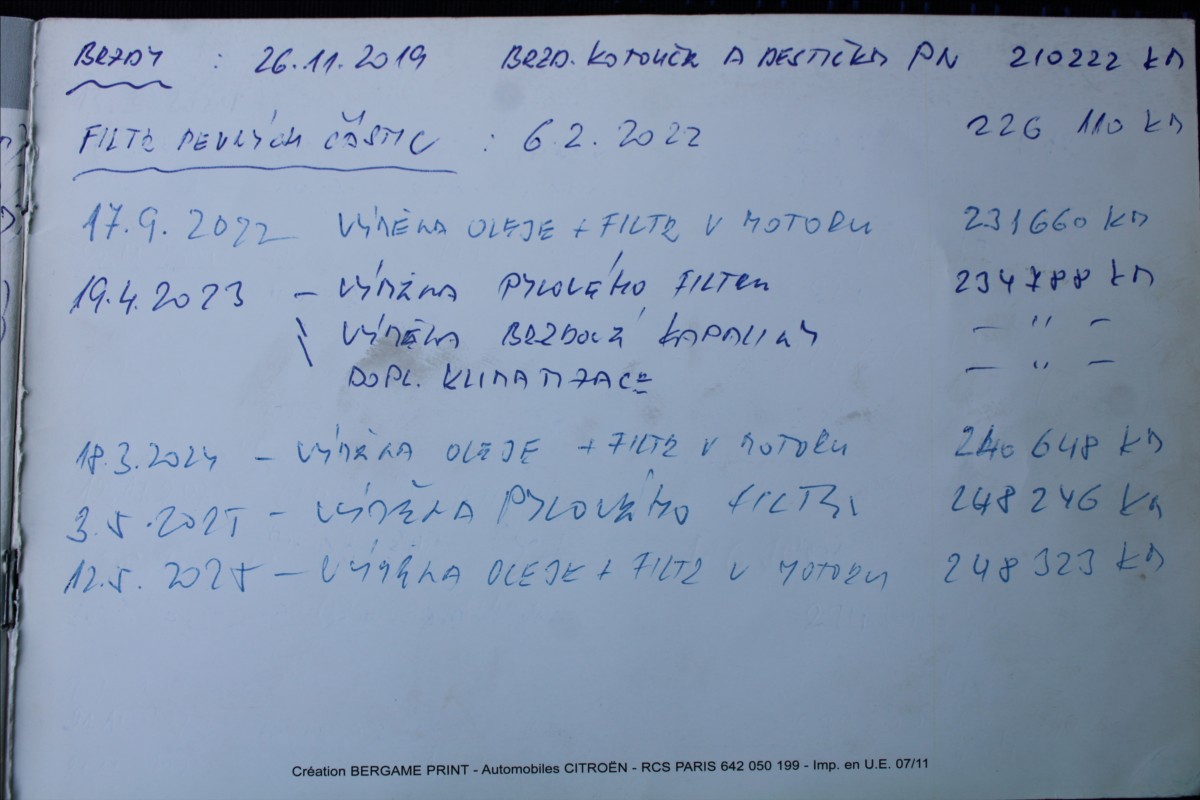 BRZDY : 26.11.2019 BRZD. KOTOUČE A DESTIČKA PN 210222 KM
FILTR PEVNÝCH ČÁSTIC : 6.2.2022 226 110 KM
17.9.2022 VÝMĚNA OLEJE + FILTR V MOTORU 231660 KM
19.4.2023 – VÝMĚNA PYLOVÉHO FILTRU 234788 KM
VÝMĚNA BRZDOVÁ KAPALINY – " –
DOPL. KLIMATIZACE – " –
18.3.2024 – VÝMĚNA OLEJE + FILTR V MOTORU 240 648 KM
3.5.2025 – VÝMĚNA PYLOVÉHO FILTRU 248246 KM
12.5.2025 – VÝMĚNA OLEJE + FILTR V MOTORU 248323 KM
Création BERGAME PRINT - Automobiles CITROËN - RCS PARIS 642 050 199 - Imp. en U.E. 07/11